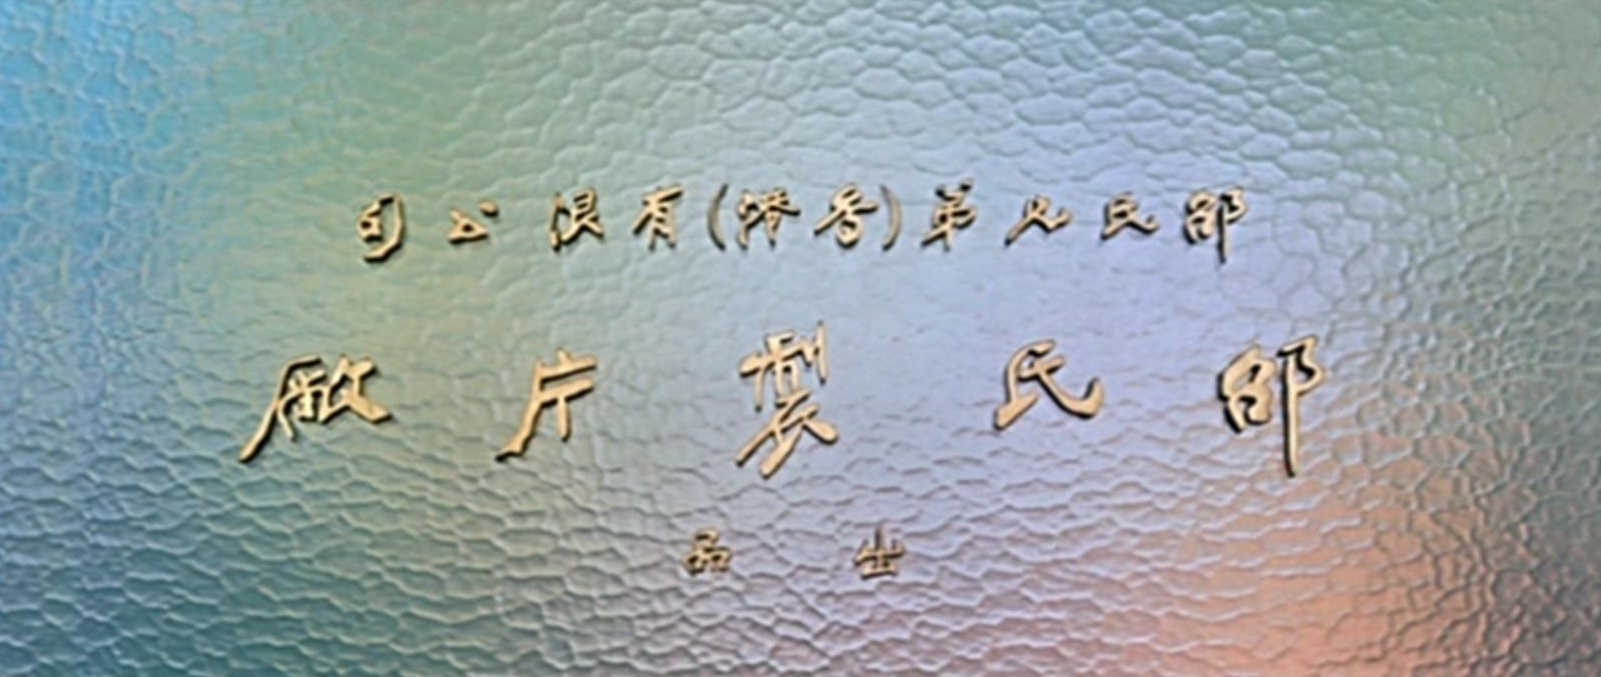 邵氏兄弟(香港)有限公司
邵氏製片廠
出品